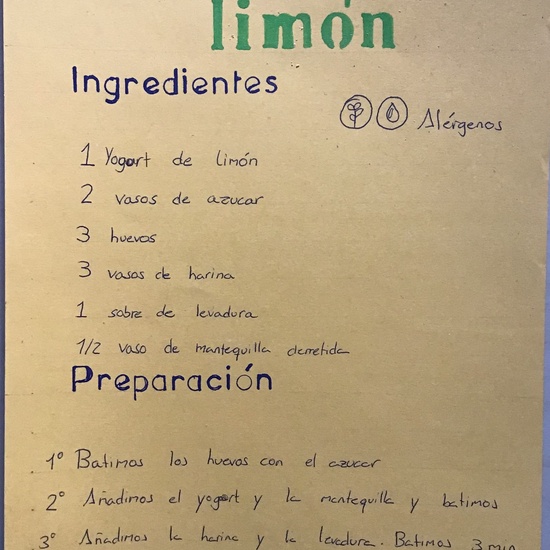 limón
Ingredientes
Alérgenos
1 Yogurt de limón
2 vasos de azucar
3 huevos
3 vasos de harina
1 sobre de levadura
1/2 vaso de mantequilla derretida
Preparación
1º Batimos los huevos con el azucar
2º Añadimos el yogurt y la mantequilla y batimos
3º Añadimos la harina y la levadura. Batimos 3 min